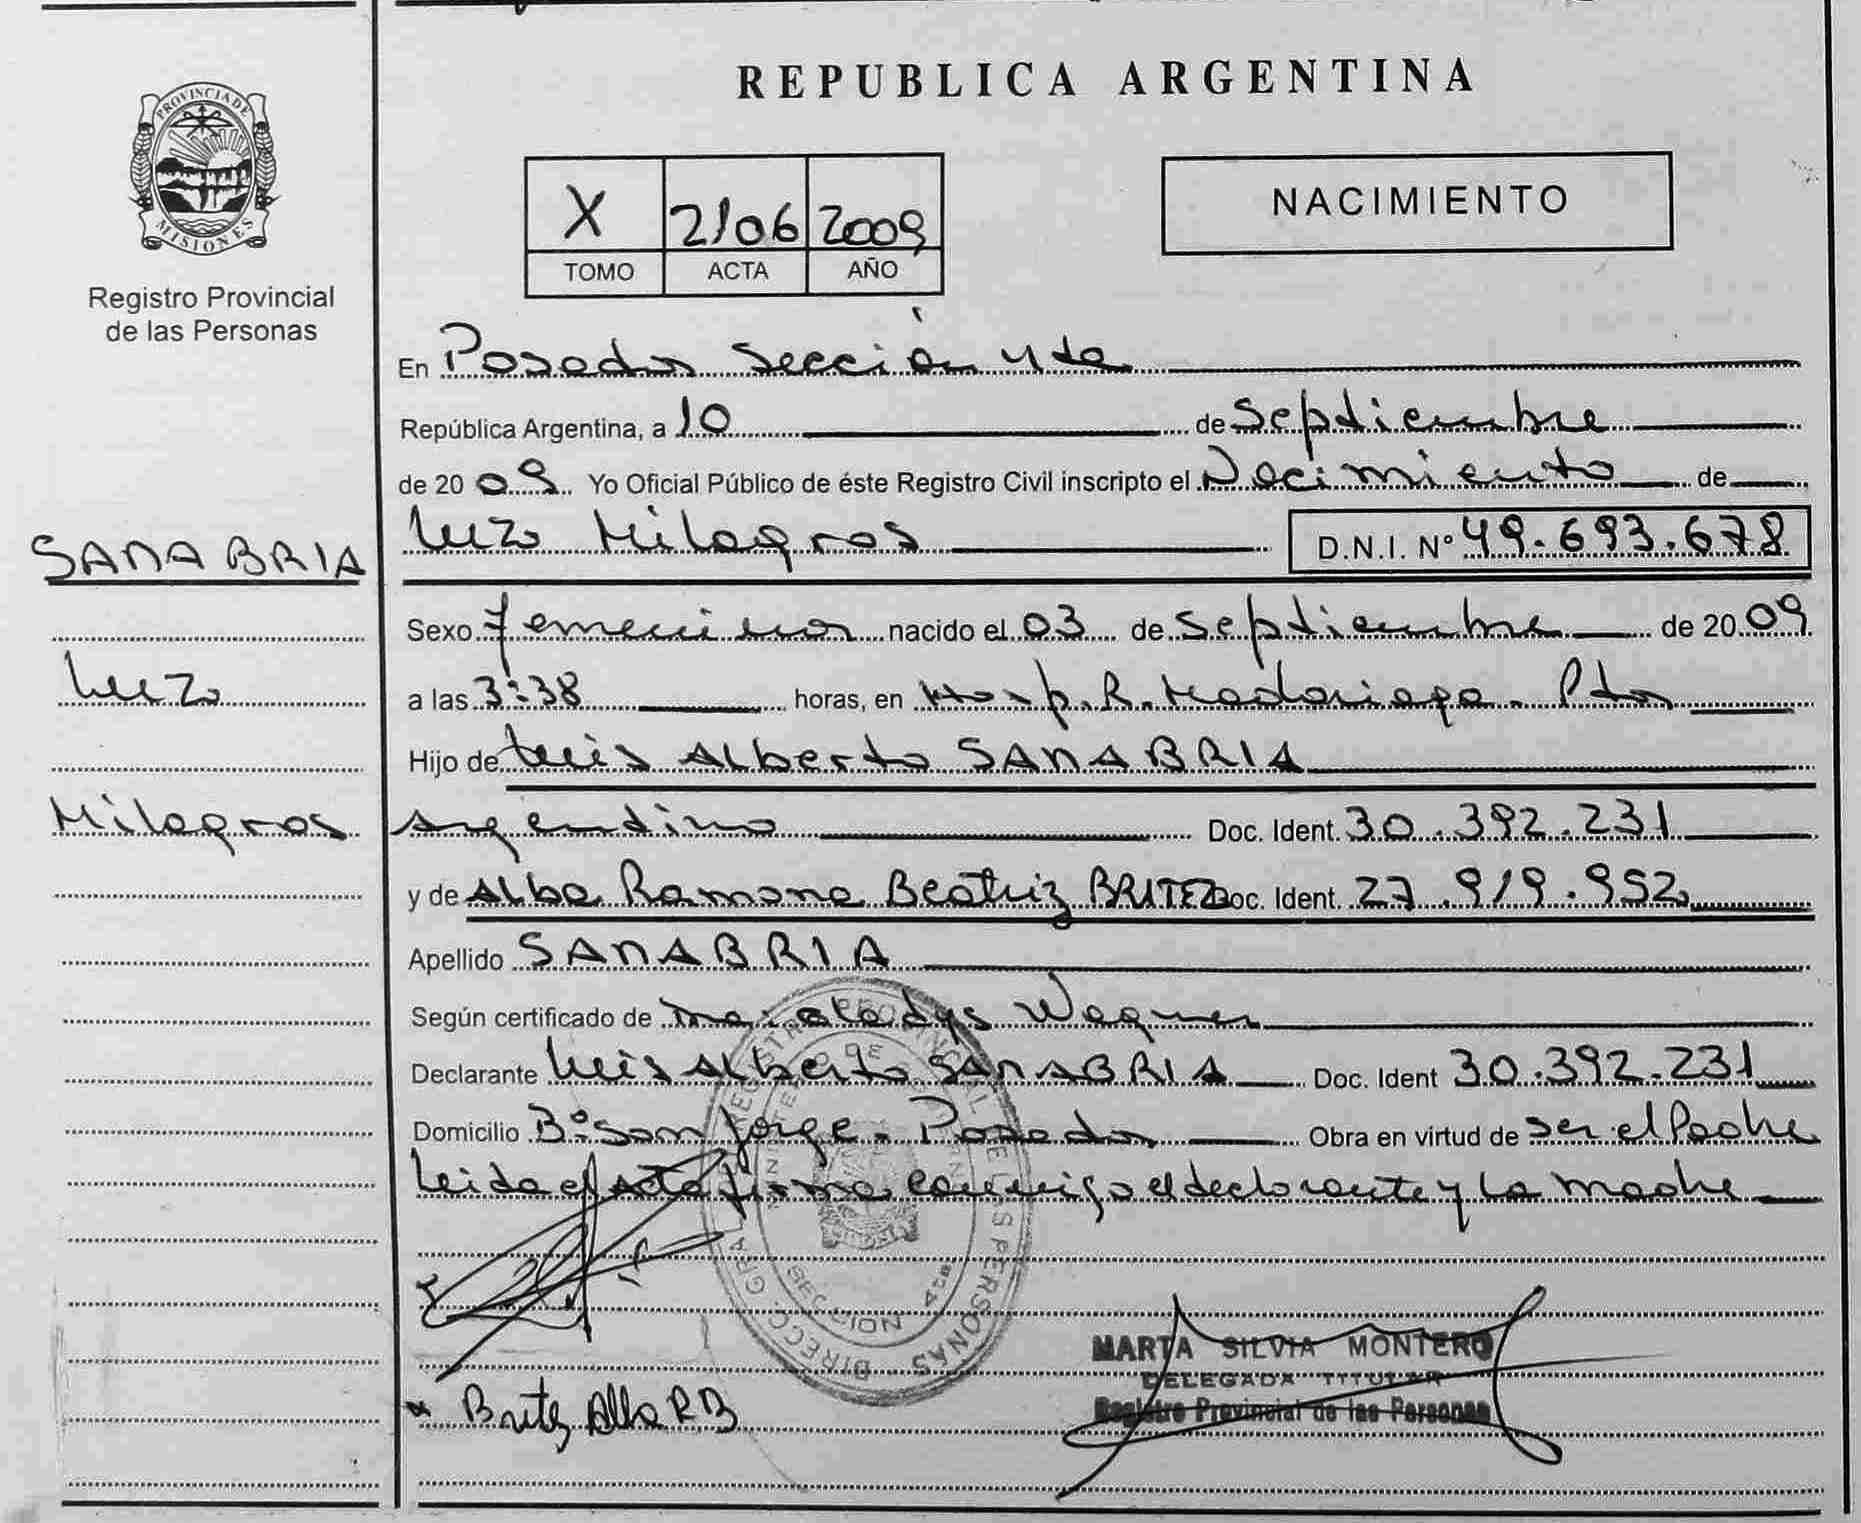 PROVINCIA DE
MISIONES
Registro Provincial
de las Personas
SANABRIA
Luza
Milagros
REPUBLICA ARGENTINA
X 2106 2009
TOMO ACTA AÑO
NACIMIENTO
En Posadas Sección 4ta
República Argentina, a 10 de Septiembre
de 2009 Yo Oficial Público de éste Registro Civil inscripto el Nacimiento de
Luza Milagros D.N.I. Nº 49.693.678
Sexo femenino nacido el 03 de Septiembre de 2009
a las 3:38 horas, en Hosp. R. Madariaga - Pdas
Hijo de Luis Alberto SANABRIA
Argentino Doc. Ident. 30.392.231
y de Alba Ramona Beatriz BRITEZ Doc. Ident. 27.919.952
Apellido SANABRIA
Según certificado de Gladys Wagner
Declarante Luis Alberto SANABRIA Doc. Ident 30.392.231
Domicilio Bº San Jorge - Posadas Obra en virtud de ser el Padre
Leida el Acta firma conmigo el declarante y la madre
MARTA SILVIA MONTERO
DELEGADA TITULAR
Registro Provincial de las Personas
Britez Alba RB